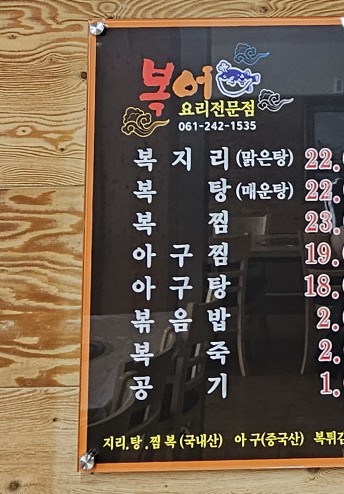 복어
요리전문점
061-242-1535
복지리(맑은탕) 22.
복탕(매운탕) 22.
복찜 23.
아구찜 19.
아구탕 18.
볶음밥 2.
복죽 2.
공기 1.
지리.탕.찜 복(국내산) 아구(중국산) 복튀김